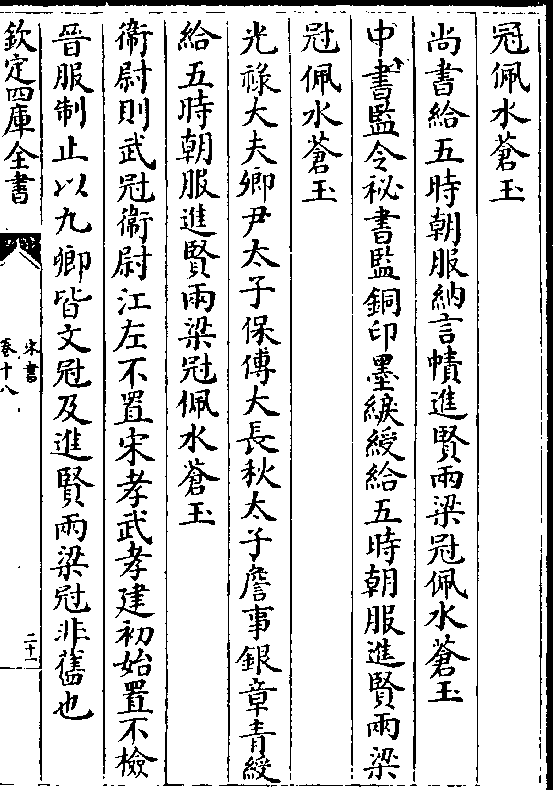 冠佩水蒼玉
尚書給五時朝服納言幘進賢兩梁冠佩水蒼玉
中書監令秘書監銅印墨綟綬給五時朝服進賢兩梁
冠佩水蒼玉
光祿大夫卿尹太子保傅大長秋太子詹事銀章青綬
給五時朝服進賢兩梁冠佩水蒼玉
衞尉則武冠衞尉江左不置宋孝武孝建初始置不檢
晉服制止以九卿皆文冠及進賢兩梁冠非舊也
欽定四庫全書
宋書
卷十八
二十一